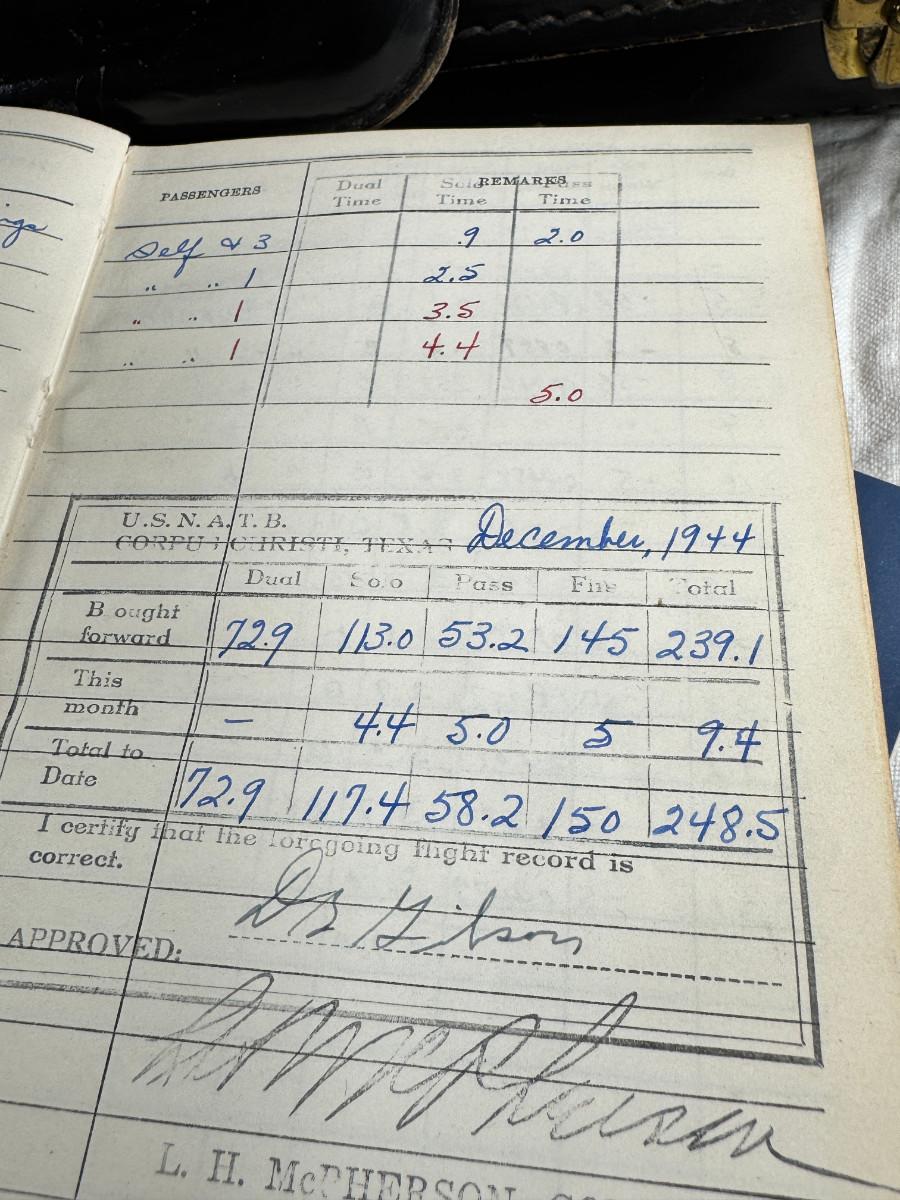 PASSENGERS REMARKS
Dual Time Solo Time Pass Time
Self & 3 .9 2.0
" " 1 2.5
" " 1 3.5
" " 1 4.4
5.0
U.S.N.A.T.B.
CORPUS CHRISTI, TEXAS December, 1944
Dual Solo Pass Total
Brought forward 72.9 113.0 53.2 145 239.1
This month – 4.4 5.0 5 9.4
Total to Date 72.9 117.4 58.2 150 248.5
I certify that the foregoing flight record is
correct.
DB Gibson
APPROVED:
LH McPherson
L. H. McPHERSON